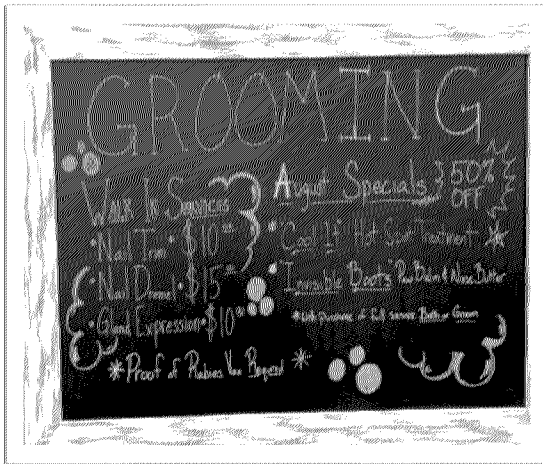 GROOMING
Walk In Services
• Nail Trim • $10⁰⁰
• Nail Dremel • $15⁰⁰
• Gland Expression • $10⁰⁰
* Proof of Rabies Vac Required *
August Specials
50% OFF
* "Cool It" Hot Spot Treatment *
* "Invisible Boots" Paw Balm & Nose Butter
* with Purchase of full service Bath or Groom